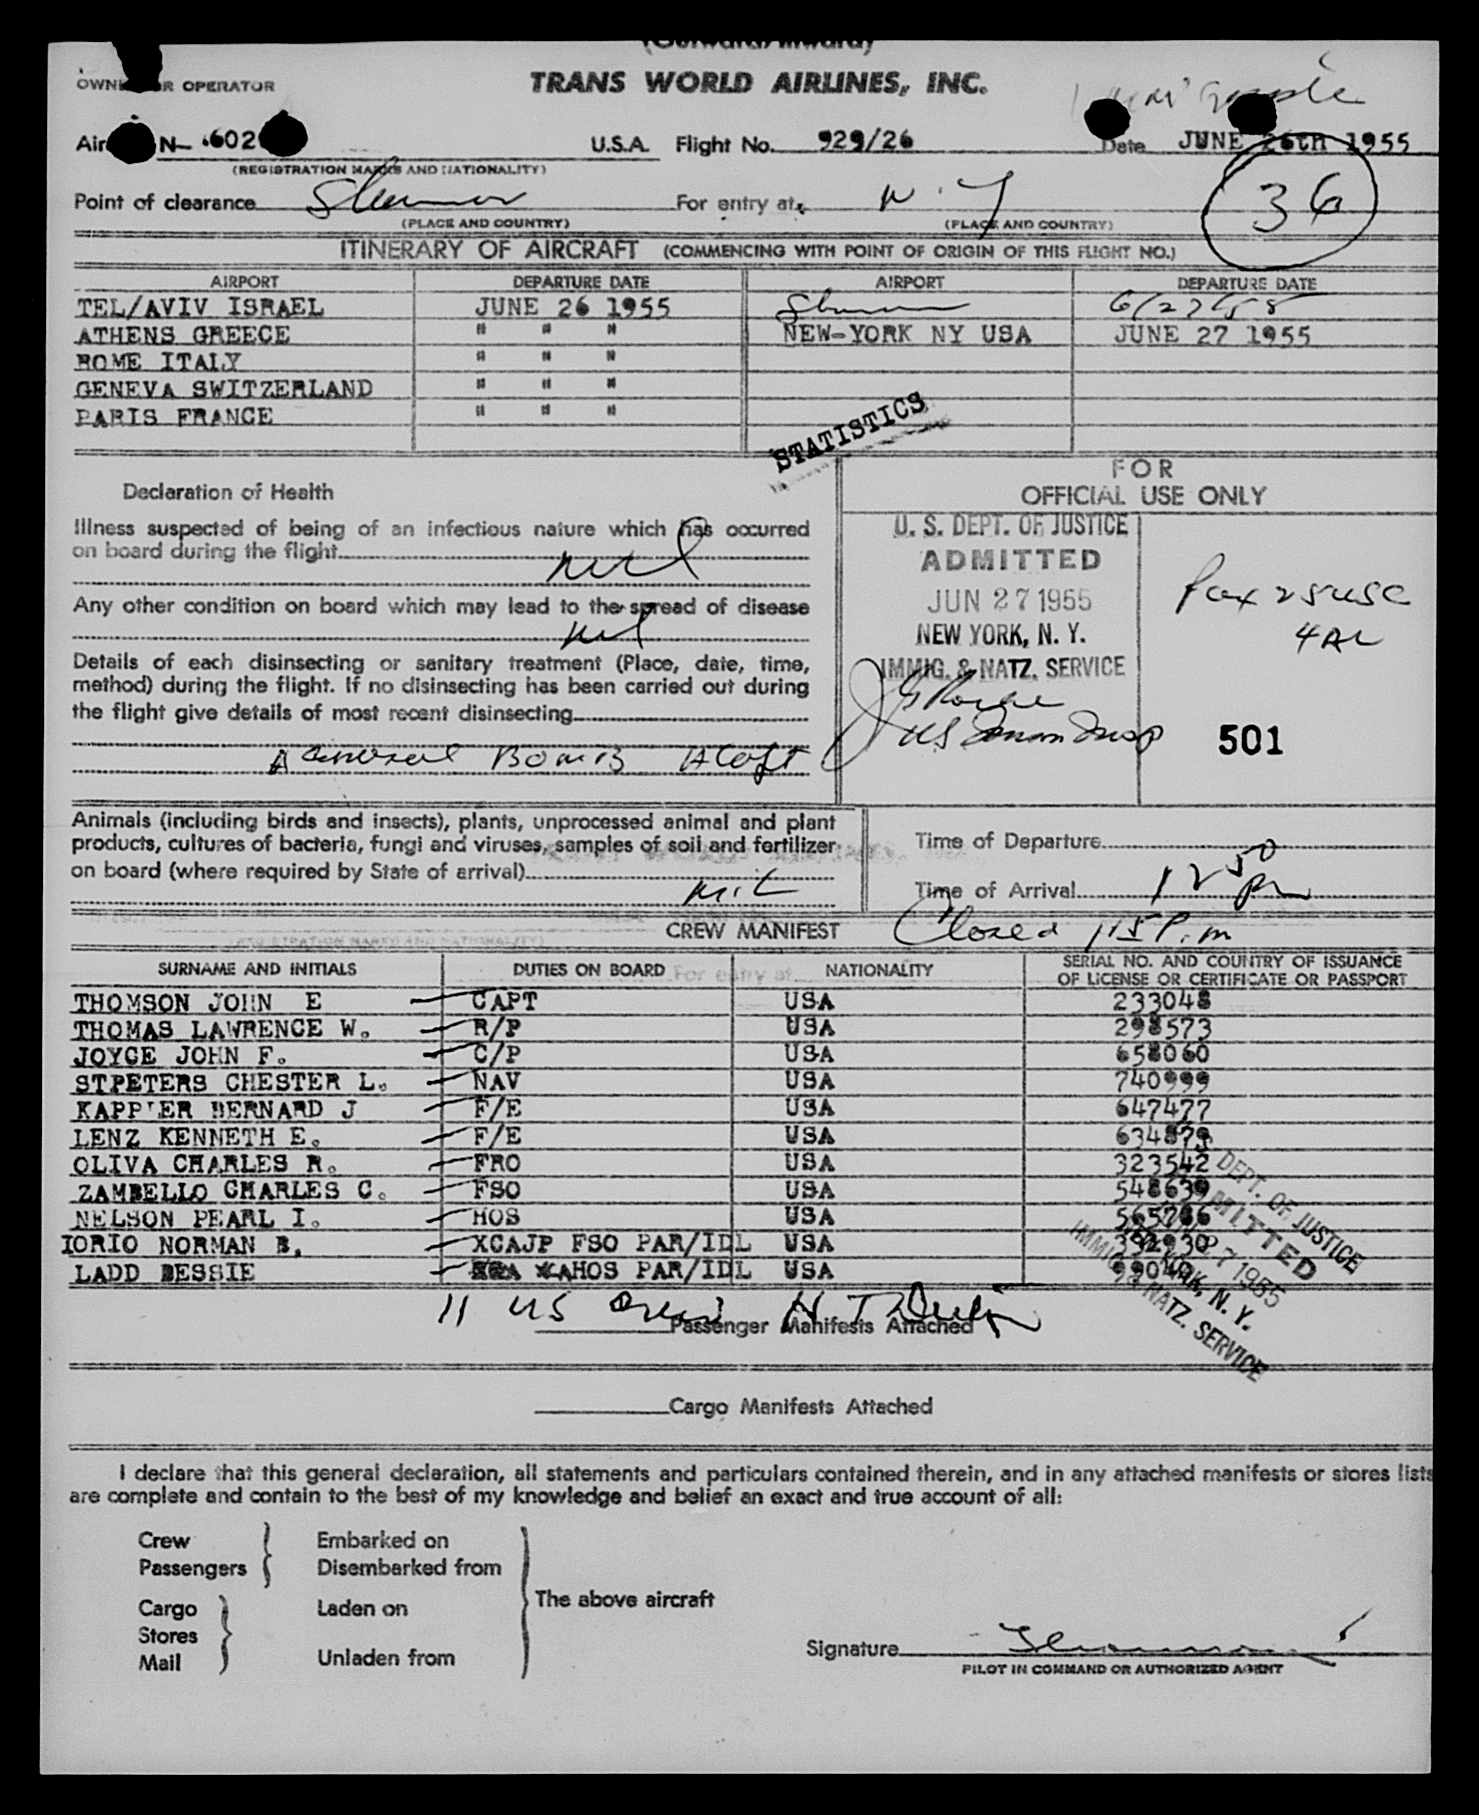 (Outward/Inward)
OWNER OR OPERATOR TRANS WORLD AIRLINES, INC.
N- 602 U.S.A. Flight No. 929/26 Date JUNE 26th 1955
(REGISTRATION MARKS AND NATIONALITY)
36
Point of clearance Shannon For entry at N.Y
(PLACE AND COUNTRY) (PLACE AND COUNTRY)
ITINERARY OF AIRCRAFT (COMMENCING WITH POINT OF ORIGIN OF THIS FLIGHT NO.)
AIRPORT DEPARTURE DATE AIRPORT DEPARTURE DATE
TEL/AVIV ISRAEL JUNE 26 1955 Shannon 6/27/55
ATHENS GREECE " " " NEW-YORK NY USA JUNE 27 1955
ROME ITALY " " "
GENEVA SWITZERLAND " " "
PARIS FRANCE " " "
STATISTICS
FOR
OFFICIAL USE ONLY
Declaration of Health
Illness suspected of being of an infectious nature which has occurred
on board during the flight
nil
Any other condition on board which may lead to the spread of disease
nil
Details of each disinsecting or sanitary treatment (Place, date, time,
method) during the flight. If no disinsecting has been carried out during
the flight give details of most recent disinsecting
Aerosol Bomb Aloft
U. S. DEPT. OF JUSTICE
ADMITTED
JUN 27 1955
NEW YORK, N. Y.
IMMIG. & NATZ. SERVICE
US Immn Insp
Pax 25 USC
4 AL
501
Animals (including birds and insects), plants, unprocessed animal and plant
products, cultures of bacteria, fungi and viruses, samples of soil and fertilizer
on board (where required by State of arrival)
nil
Time of Departure
Time of Arrival 12 50 Pm
CREW MANIFEST Closed 1:15 P.m
SURNAME AND INITIALS DUTIES ON BOARD NATIONALITY SERIAL NO. AND COUNTRY OF ISSUANCE
OF LICENSE OR CERTIFICATE OR PASSPORT
THOMSON JOHN E CAPT USA 233048
THOMAS LAWRENCE W. R/P USA 298573
JOYCE JOHN F. C/P USA 658060
STPETERS CHESTER L. NAV USA 740999
KAPP'ER BERNARD J F/E USA 647477
LENZ KENNETH E. F/E USA 634879
OLIVA CHARLES R. FRO USA 323542
ZAMBELLO CHARLES C. FSO USA 548639
NELSON PEARL I. HOS USA 565786
IORIO NORMAN B. XCAJP FSO PAR/IDL USA 332930
LADD BESSIE AHOS PAR/IDL USA
DEPT. OF JUSTICE
ADMITTED
JUN 27 1955
NEW YORK, N. Y.
IMMIG. & NATZ. SERVICE
11 US Crew
Passenger Manifests Attached
Cargo Manifests Attached
I declare that this general declaration, all statements and particulars contained therein, and in any attached manifests or stores lists
are complete and contain to the best of my knowledge and belief an exact and true account of all:
Crew Embarked on
Passengers Disembarked from
The above aircraft
Cargo Laden on
Stores
Mail Unladen from
Signature
PILOT IN COMMAND OR AUTHORIZED AGENT